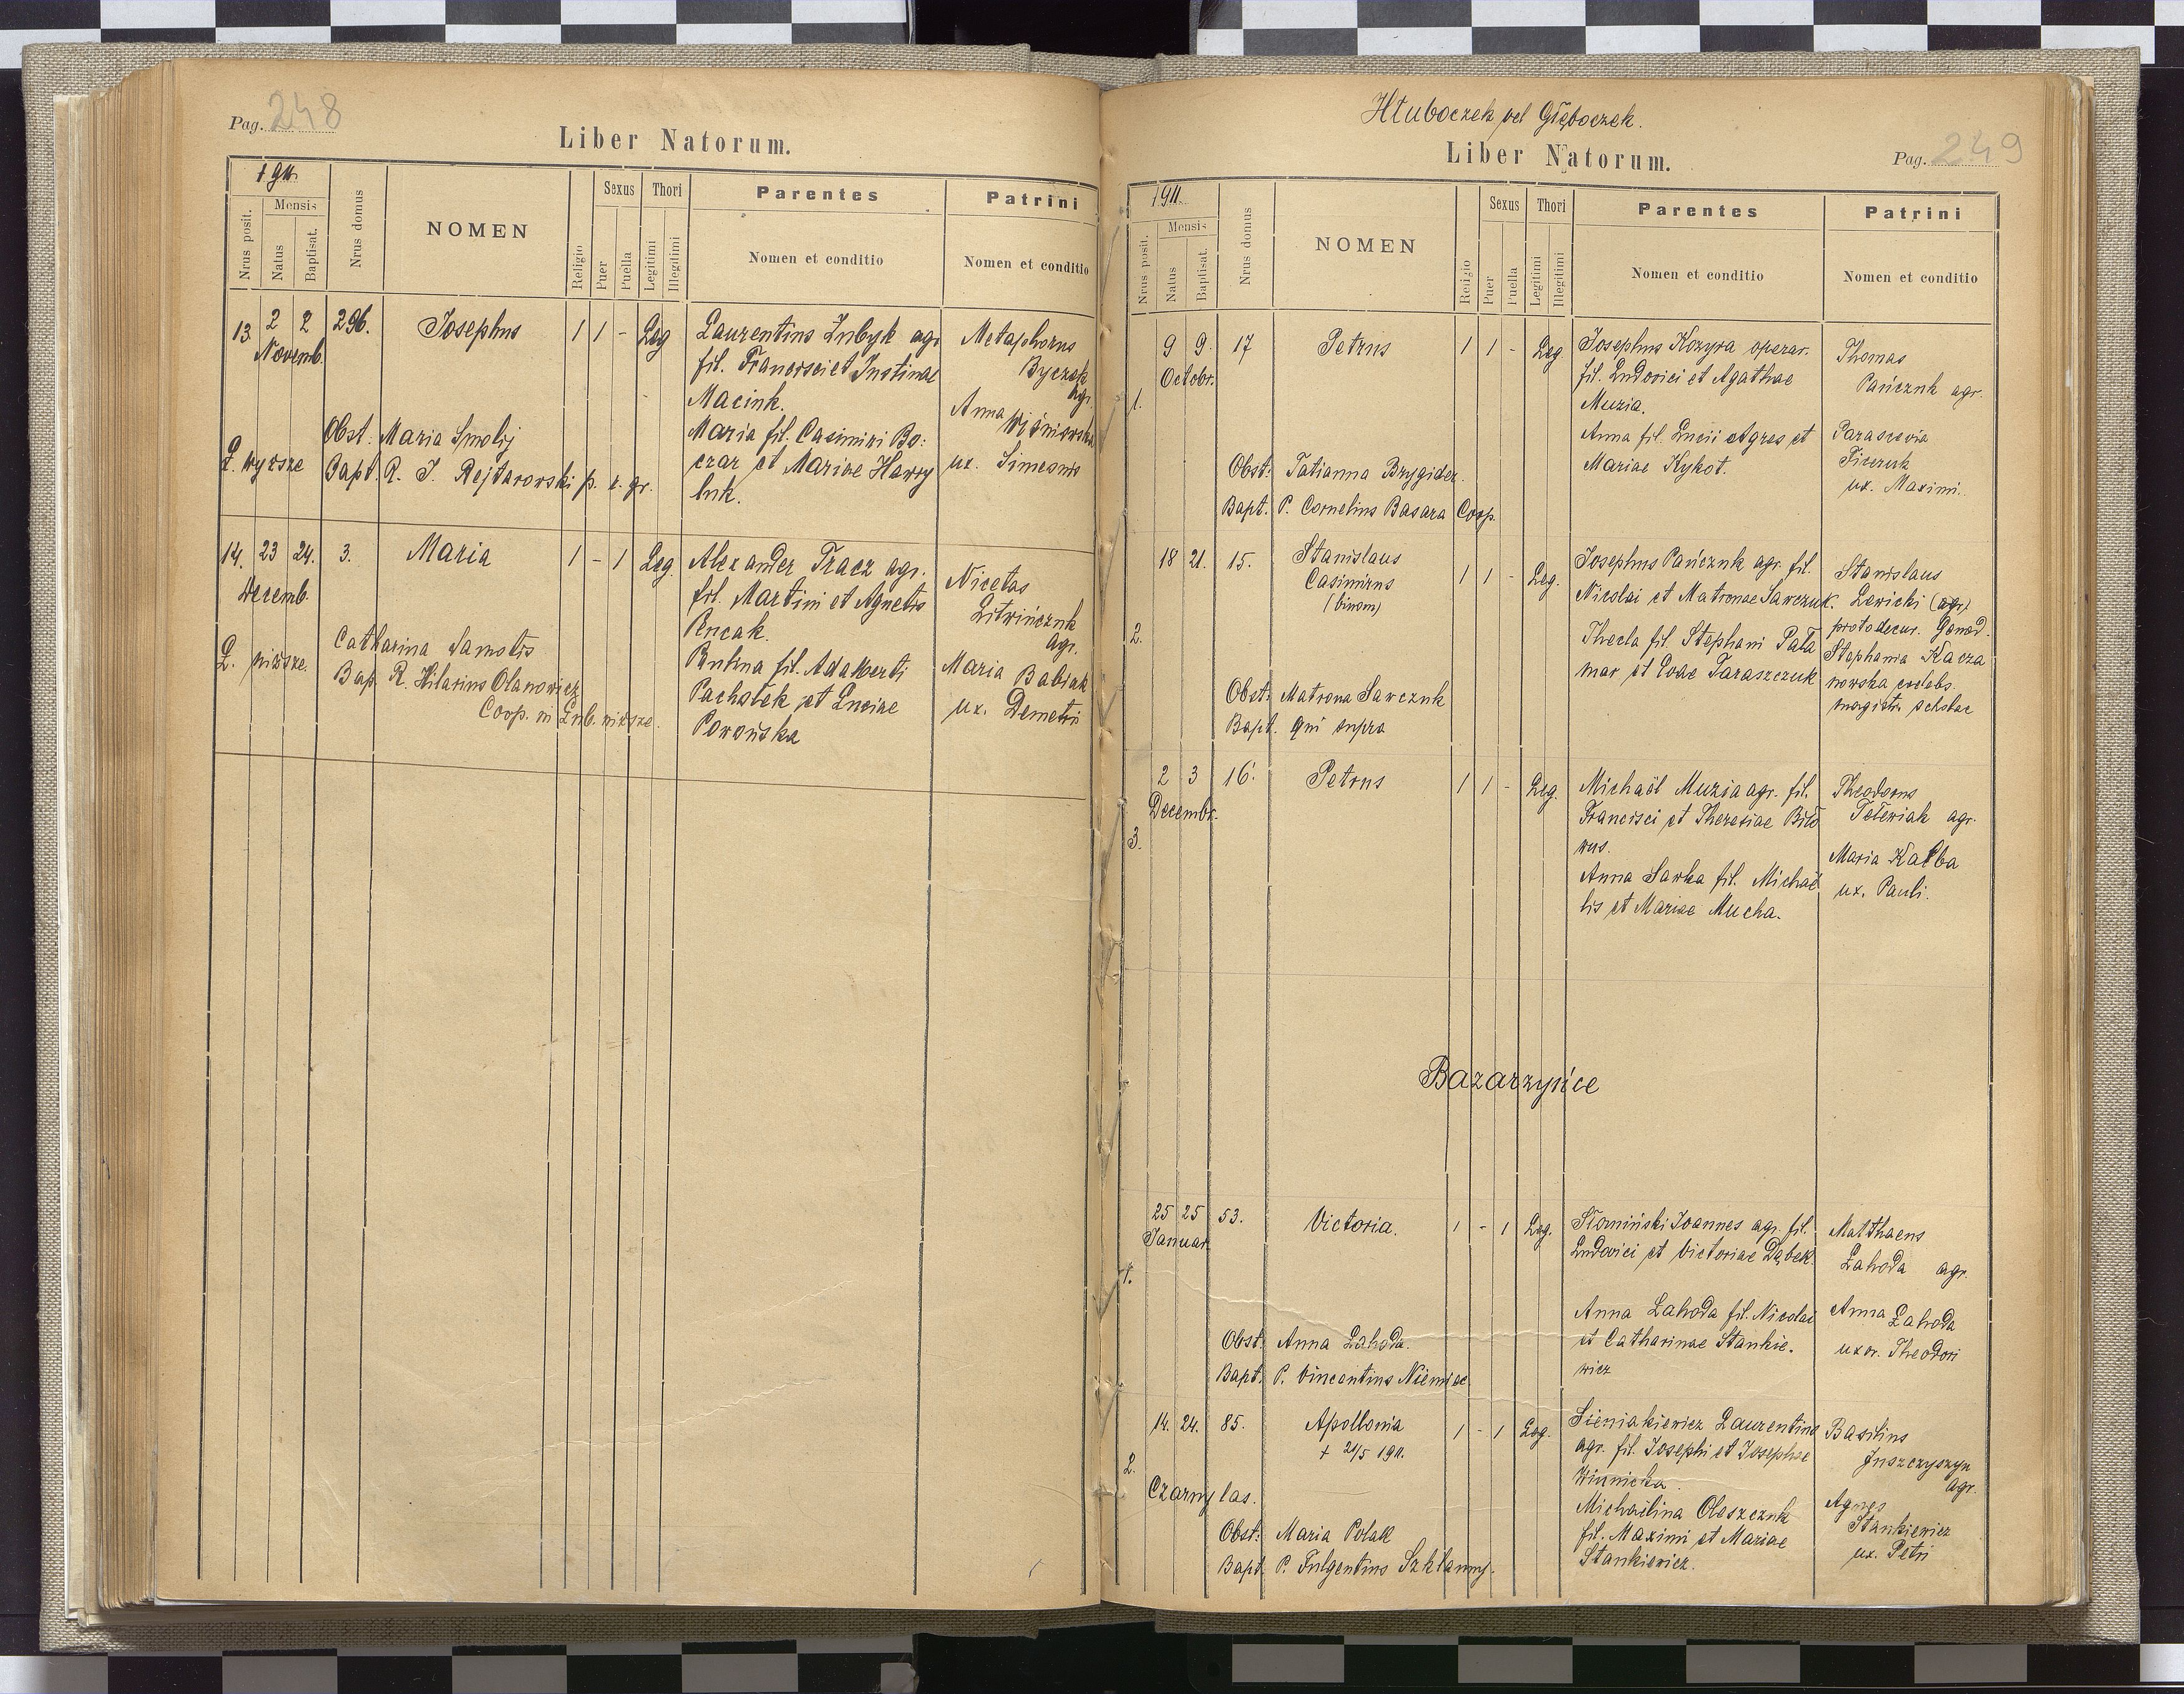 Pag. 248
Liber Natorum.
1911.
Nrus posit.
Mensis
Natus
Baptisat.
Nrus domus
NOMEN
Religio
Sexus
Puer
Puella
Thori
Legitimi
Illegitimi
Parentes
Nomen et conditio
Patrini
Nomen et conditio
13. 2 2 296. Josephus 1 1 - Leg
Novemb.
Ł. wyższe
Obst: Maria Smolij
Bapt. R. J. Rejtarowski p. r. gr.
Laurentius Zubyk agr
fil. Francisci et Justinae
Maciuk.
Maria fil. Casimiri Bo:
czar et Mariae Hawry
luk.
Metaphorus
Byczek
agr.
Anna Wiśniowska
ux. Simeonis
14. 23 24. 3. Maria 1 - 1 Leg.
Decemb.
Ł. niższe.
Catharina Samotis
Bap. R. Hilarius Olanowicz
Coop. in Łub. niższe.
Alexander Tracz agr.
fil. Martini et Agnetis
Pencak.
Paulina fil. Adalberti
Pachołek et Luciae
Powońska
Nicetas
Litwińczuk
agr.
Maria Babiak
ux. Demetri
Hłuboczek vel Głęboczek.
Liber Natorum.
Pag. 249
1911.
Nrus posit.
Mensis
Natus
Baptisat.
Nrus domus
NOMEN
Religio
Sexus
Puer
Puella
Thori
Legitimi
Illegitimi
Parentes
Nomen et conditio
Patrini
Nomen et conditio
9 9. 17 Petrus 1 1 - Leg.
Octobr.
1.
Obst: Tatianna Brygider.
Bapt. P. Cornelius Basara Coop.
Josephus Kozyra operar.
fil. Ludovici et Agathae
Muzia.
Anna fil. Lucii Agres et
Mariae Kykot.
Thomas
Pańczuk agr.
Parascevia
Ficzuk
ux. Maximi.
18 21. 15. Stanislaus 1 1 - Leg.
Casimirus
(binom)
2.
Obst: Matrona Sawczuk
Bapt. qui supra
Josephus Pańczuk agr. fil.
Nicolai et Matronae Sawczuk.
Thecla fil Stephani Pała
mar et Evae Taraszczuk
Stanislaus
Lewicki (agr)
protodecur. Gonod.
Stephania Kacza
nowska coelebs.
magistra scholae
2 3 16. Petrus 1 1 - Leg.
Decembr.
3.
Michaël Muzia agr. fil.
Francisci et Theresiae Biło
wus.
Anna Sawka fil. Michaë
lis et Mariae Mucha.
Theodorus
Telewiak agr.
Maria Kałba
ux. Pauli.
Bazarzyńce
25 25 53. Victoria. 1 - 1 Leg.
Januar.
1.
Obst: Anna Łahoda.
Bapt: P. Vincentius Niemiec
Słomiński Joannes agr. fil.
Ludovici et Victoriae Dąbek.
Anna Łahoda fil. Nicolai
et Catharinae Stankie-
wicz
Matthaeus
Łahoda agr.
Anna Łahoda
uxor. Theodori
14. 24. 85. Apollonia 1 - 1 Leg.
+ 21/5 1911.
2.
Czarny las.
Obst: Maria Polak
Bapt. P. Fulgentius Szklanny.
Sieniakiewicz Laurentius
agr. fil. Josephi et Josephae
Winnicka.
Michaëlina Oleszczuk
fil. Maximi et Mariae
Stankiewicz.
Basilius
Juszczyszyn
agr.
Agnes
Stankiewicz
ux. Petri